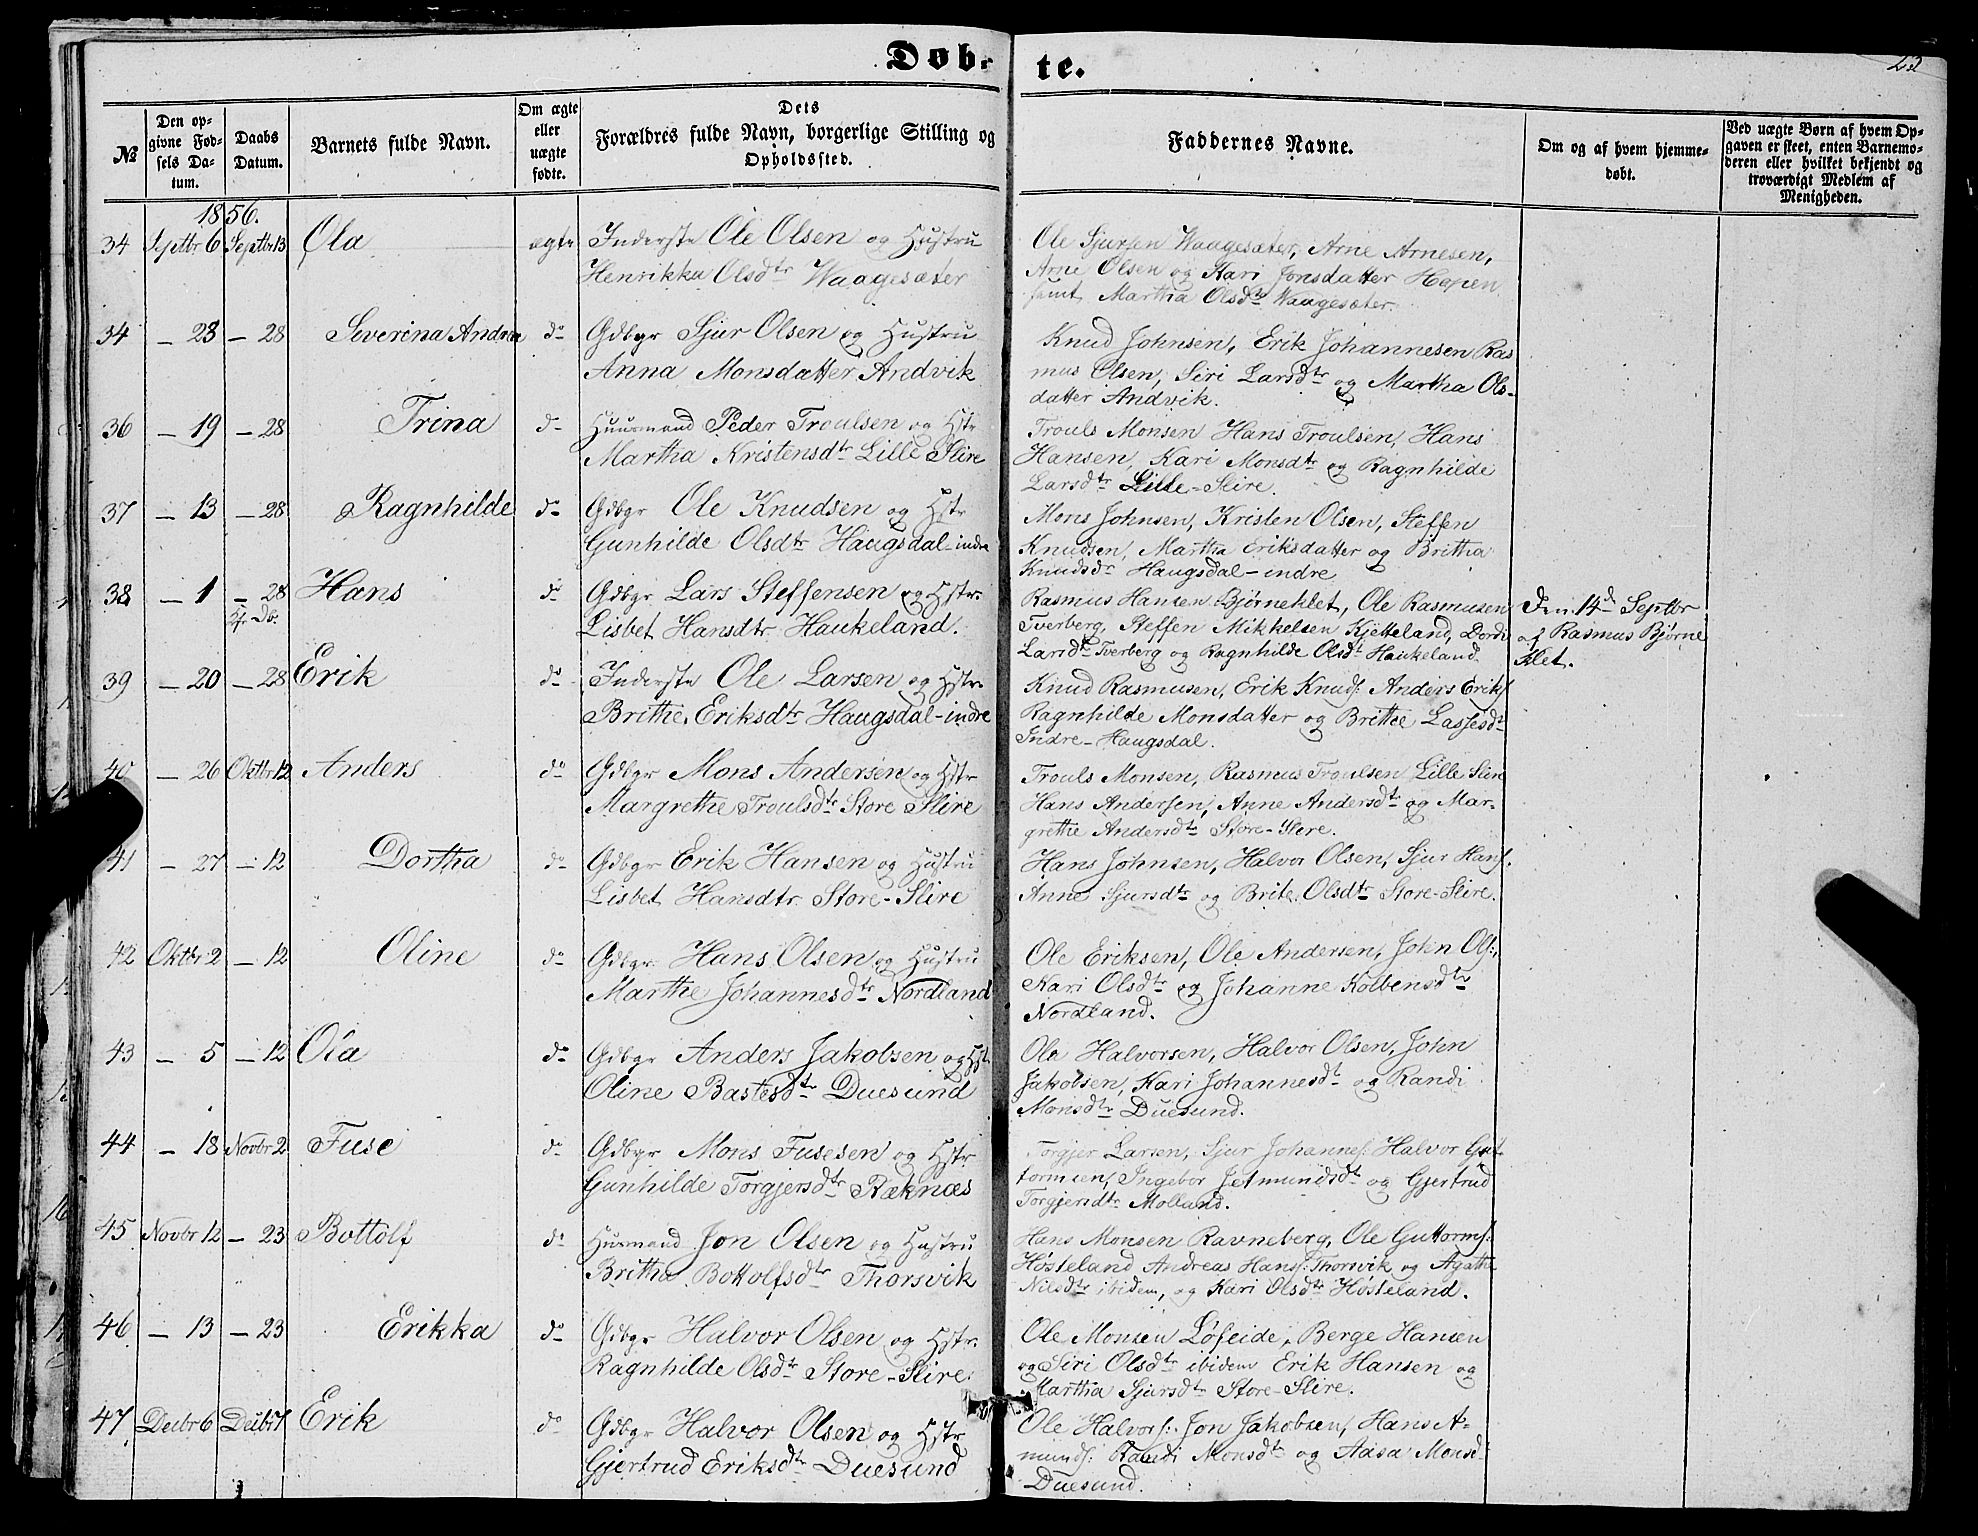 Døb-
te.
23
№
Den op-
givne Fød-
sels Da-
tum.
Daabs
Datum.
Barnets fulde Navn.
Om ægte
eller
uægte
fødte.
Dets
Forældres fulde Navn, borgerlige Stilling og
Opholdssted.
Faddernes Navne.
Om og af hvem hjemme-
døbt.
Ved uægte Børn af hvem Op-
gaven er skeet, enten Barnemo-
deren eller hvilket bekjendt og
troværdigt Medlem af
Menigheden.
1856.
34 Septbr 6 Septbr 13 Ola ægte Inderste Ole Olsen og Hustru
Henrikka Olsdtr Waagesæter
Ole Sjursen Waagesæter, Arne Arnesen,
Arne Olsen og Kari Jonsdatter Hopen
samt Martha Olsdtr Waagesæter.
34 — 23 — 28 Severina Andrea do Gdbgr Sjur Olsen og Hustru
Anna Monsdatter Andvik
Knud Johnsen, Erik Johannesen Ras
mus Olsen, Siri Larsdtr og Martha Ols-
datter Andvik.
36 — 19 — 28 Trina do Huusmand Peder Troulsen og Hstr
Martha Kristensdtr Lille Slire
Trouls Monsen Hans Troulsen, Hans
Hansen, Kari Monsdtr og Ragnhilde
Larsdtr Lille-Slire.
37 — 13 — 28 Ragnhilde do Gdbgr Ole Knudsen og Hstr
Gunhilde Olsdtr Haugsdal-indre
Mons Johnsen, Kristen Olsen, Steffen
Knudsen, Martha Eriksdatter og Britha
Knudsdr Haugsdal-indre
38 — 1 — 28 Hans do Gdbgr Lars Steffensen og Hstr.
Hj. Db.
Lisbet Hansdtr Haukeland.
Rasmus Hansen Bjørneklet, Ole Rasmusen
Tverberg, Steffen Mikkelsen Kjetteland, Dordi
Larsdtr Tverberg og Ragnhilde Olsdtr Haukeland
Den 14d Septbr
af Rasmus Bjørne
klet.
39 — 20 — 28 Erik do Inderste Ole Larsen og Hstr.
Brithe Eriksdtr Haugsdal-indre
Knud Rasmusen, Erik Knuds: Anders Eriks.
Ragnhilde Monsdatter og Brithe Lassesdtr
Indre-Haugsdal.
40 — 26 Oktbr 12 Anders do Gdbgr Mons Andersen og Hstr
Margrethe Troulsdtr Store Slire
Trouls Monsen, Rasmus Troulsen Lille Slire
Hans Andersen, Anne Andersdtr og Mar-
grethe Andersdtr Store-Slire.
41 — 27 — 12 Dortha do Gdbgr Erik Hansen og Hustru
Lisbet Hansdtr. Store-Slire
Hans Johnsen, Halvor Olsen, Sjur Hans.
Anne Sjursdtr og Brite Olsdtr Store-Slire.
42 Oktbr 2 — 12 Oline do Gdbgr. Hans Olsen og Hustru
Marthe Johannesdtr Nordland
Ole Eriksen, Ole Andersen, John Ols:,
Kari Olsdtr og Johanne Kolbensdtr
Nordland.
43 — 5 — 12 Ola do Gdbgr Anders Jakobsen og Hst.
Oline Bastesdtr Duesund
Ole Halvorsen, Halvor Olsen, John
Jakobsen, Kari Johannesdt og Randi
Monsdtr Duesund.
44 — 18 Novbr 2 Fuse do Gdbgr Mons Fusesen og Hstr
Gunhilde Torgjersdtr Ræknæs
Torgjer Larsen, Sjur Johannes: Halvor Gut
tormsen, Ingebor Jetmundsdt og Gjertrud
Torgjersdtr Molland.
45 Novbr 12 — 23 Bottolf do Husmand Jon Olsen og Hustru
Britha Bottolfsdtr Thorsvik
Hans Monsen Ravneberg, Ole Guttorms:
Høsteland Andreas Hans: Thorsvik og Agathe
Nilsdtr ibidem, og Kari Olsdtr Høsteland.
46 — 13 — 23 Erikka do Gdbgr Halvor Olsen og Hstr.
Ragnhilde Olsdtr Store-Slire.
Ole Monsen Løfeide, Berge Hansen
og Siri Olsdtr ibidem Erik Hansen og
Martha Sjursdtr Store-Slire.
47 Decbr 6 Decbr 7 Erik do Gdbgr Halvor Olsen og Hstr
Gjertrud Eriksdtr Duesund
Ole Halvors:, Jon Jakobsen, Hans A-
munds: Randi Monsdtr og Aasa Monsd
Duesund.